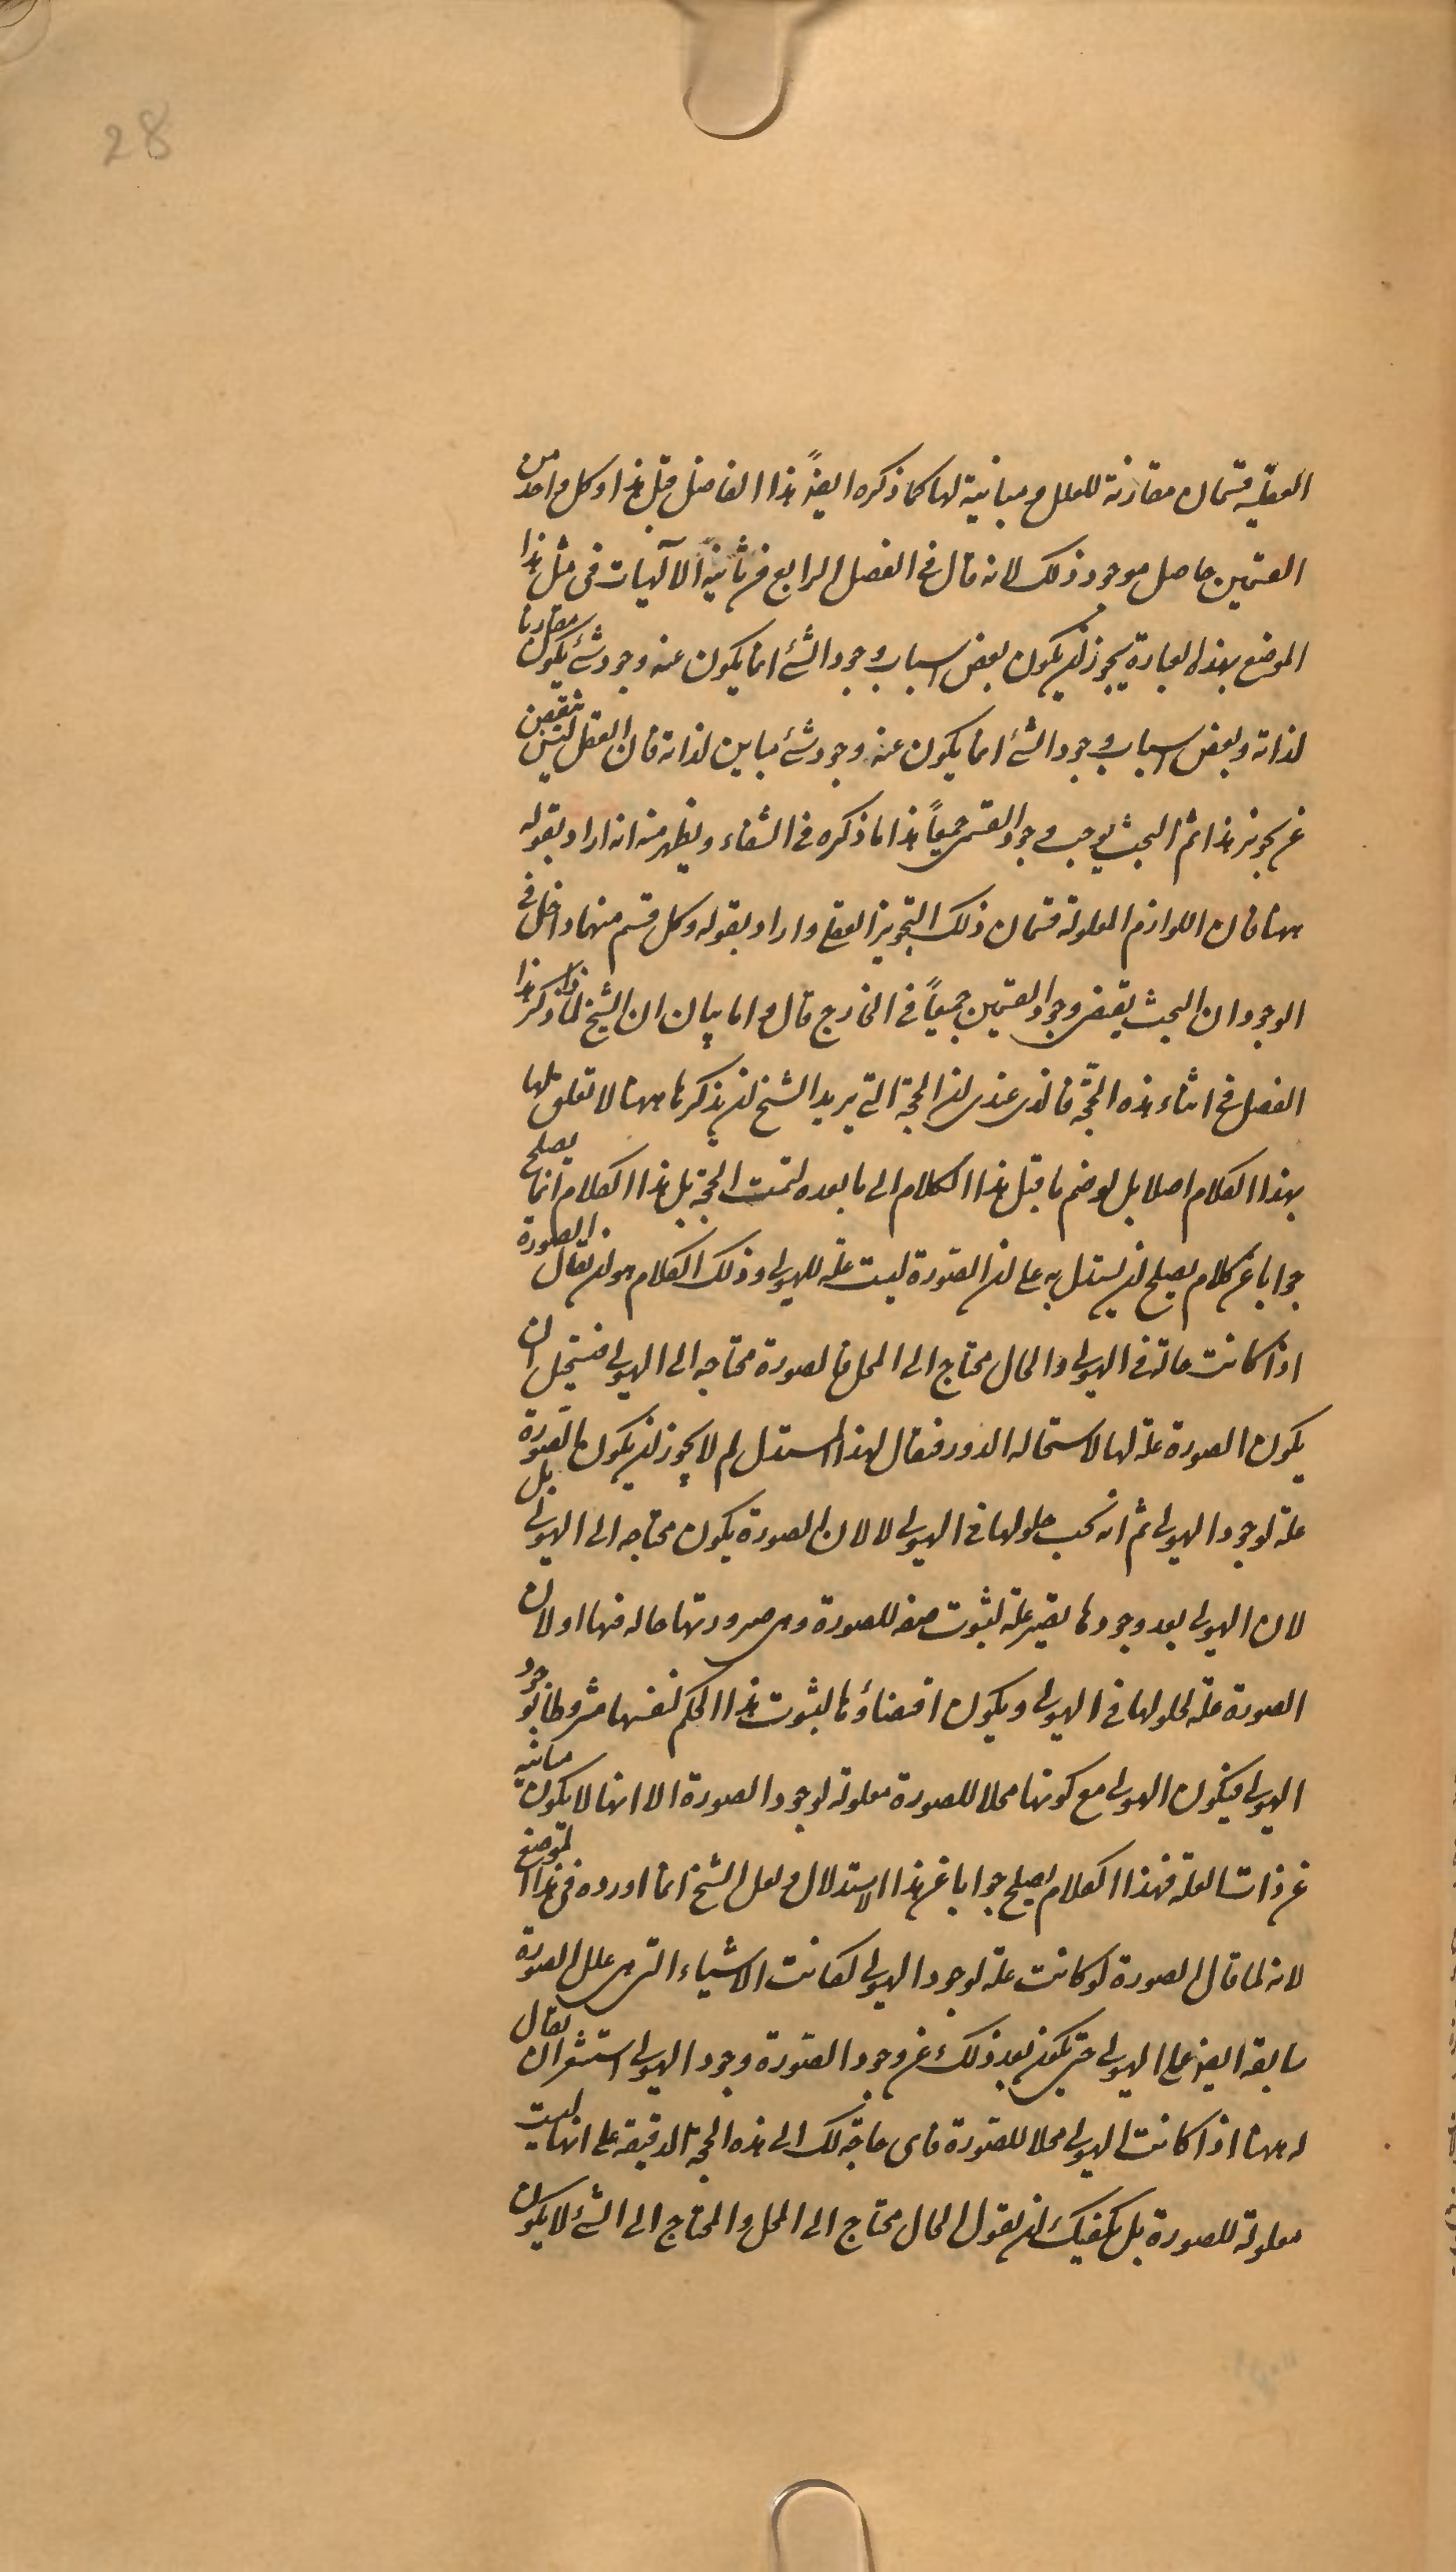 28
العقلية قسمان مقارنة للعلل و مباينة لها كما ذكره ايضاً هذا الفاضل قبل هذا و كل واحد من
القسمين حاصل موجود ذلك لانه قال فى الفصل الرابع من ثانية الآلهيات فى مثل هذا
الموضع بهذه العبارة يجوز ان يكون بعض اسباب وجود الشئ انما يكون عنه وجود شئ يكون مقارنا
لذاته و بعض اسباب وجود الشئ انما يكون عنه وجود شئ مباين لذاته فان العقل ليس ينقبض
عن تجويز هذا ثم البحث يوجب وجود القسمين جميعاً هذا ما ذكره فى الشفاء و يظهر منه انه اراد بقوله
ههنا فان اللوازم المعلولة قسمان ذلك التجويز العقلى و اراد بقوله و كل قسم منهما داخل فى
الوجود ان البحث يقتضى وجود القسمين جميعاً فى الخارج قال و اما بيان ان الشيخ لماذا ذكر هذا
الفصل فى اثناء هذه الحجّة فالذى عندى ان الحجة التى يريد الشيخ ان يذكرها ههنا لا تعلق لها
بهذا الكلام اصلا بل لو ضم ما قبل هذا الكلام الى ما بعده لتمت الحجة بل هذا الكلام انما يصلح
جوابا عن كلام يصلح ان يستدل به على ان الصّورة ليست علة للهيولى و ذلك الكلام هو ان يقال الصورة
اذا كانت حالة فى الهيولى و الحال محتاج الى المحل فالصورة محتاجه الى الهيولى فيستحيل ان
يكون الصورة علة لها لاستحالة الدور فيقال لهذا المستدل لم لا يجوز ان يكون الصّورة
علة لوجود الهيولى ثم انه يجب حلولها فى الهيولى لا لان الصورة يكون محتاجه الى الهيولى بل
لان الهيولى بعد وجودها يصير علة لثبوت صفه للصورة و هى صيرورتها حالة فيها او لان
الصورة علة لحلولها فى الهيولى و يكون اقتضاؤها لثبوت هذا الحكم لنفسها مشروطا بوجود
الهيولى فيكون الهيولى مع كونها محلا للصورة معلولة لوجود الصورة الا انها لا يكون مباينه
عن ذات العلة فهذا الكلام يصلح جوابا عن هذا الاستدلال و لعل الشيخ انما اورده فى هذا الموضع
لانه لما قال الصورة لو كانت علة لوجود الهيولى لكانت الاشياء التى هى علل الصورة
سابقة ايضا على الهيولى حتى يكون بعد ذلك عن وجود الصّورة وجود الهيولى استشعر ان يقال
له ههنا اذا كانت الهيولى محلا للصّورة فاى حاجة لك الى هذه الحجة الدقيقة على انها ليست
معلولة للصورة بل يكفيك ان يقول الحال محتاج الى المحل و المحتاج الى الشئ لا يكون